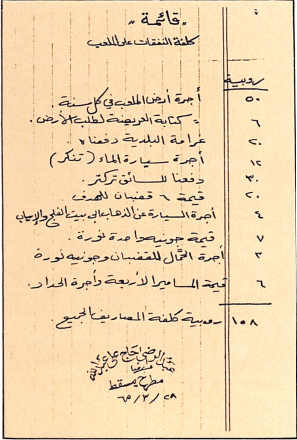 " قائمة "
كلفة النفقات على الملعب
روبية
٥٠ أجرة أرض الملعب في كل سنة.
٦ = كتابة العريضة لطلب الأرض.
٢٠ غرامة البلدية دفعناه.
١٢ أجرة سيارة الماء (تنكر)
٣٠ دفعنا للسائق تركتر.
٢٠ قيمة ٦ قضبان للهدف
٤ أجرة السيارة عن الذهاب إلى بيت الفلج والإياب
٧ قيمة جونيه واحدة نورة.
٣ أجرة الحمّال للقضبان وجونيه نورة
٦ قيمة المسامير الأربعة وأجرة الحداد.
١٥٨ روبية كلفة المصاريف الجميع.
حاج علي
مطرح مسقط
٦٥/٣/٢٨